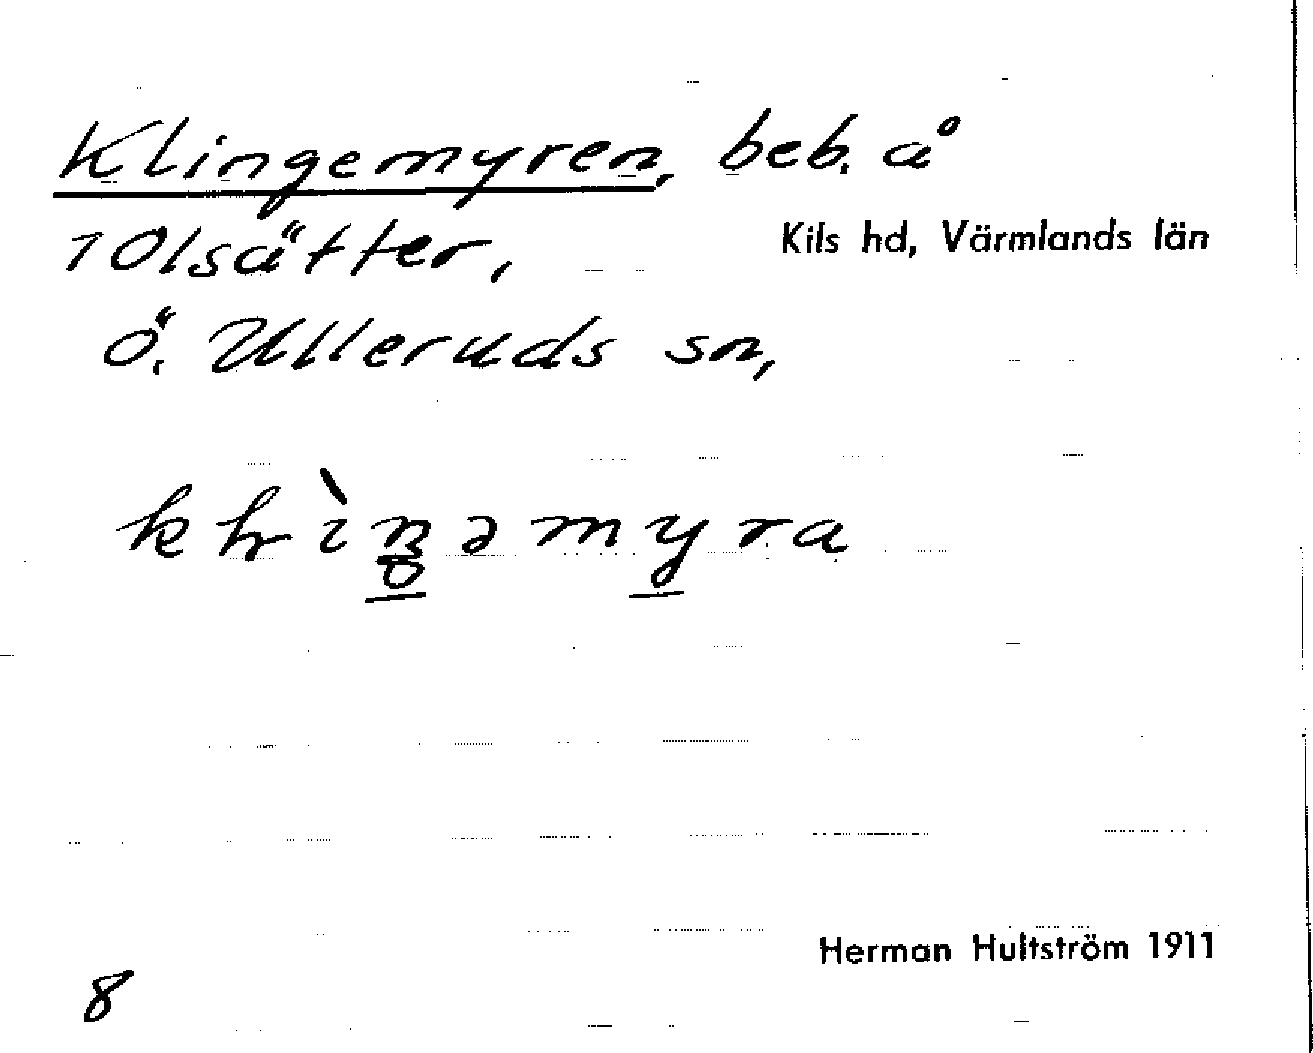 Klingemyren, beb. å
1 Olsätter,
Kils hd, Värmlands län
Ö. Ulleruds sn,
Herman Hultström 1911
8